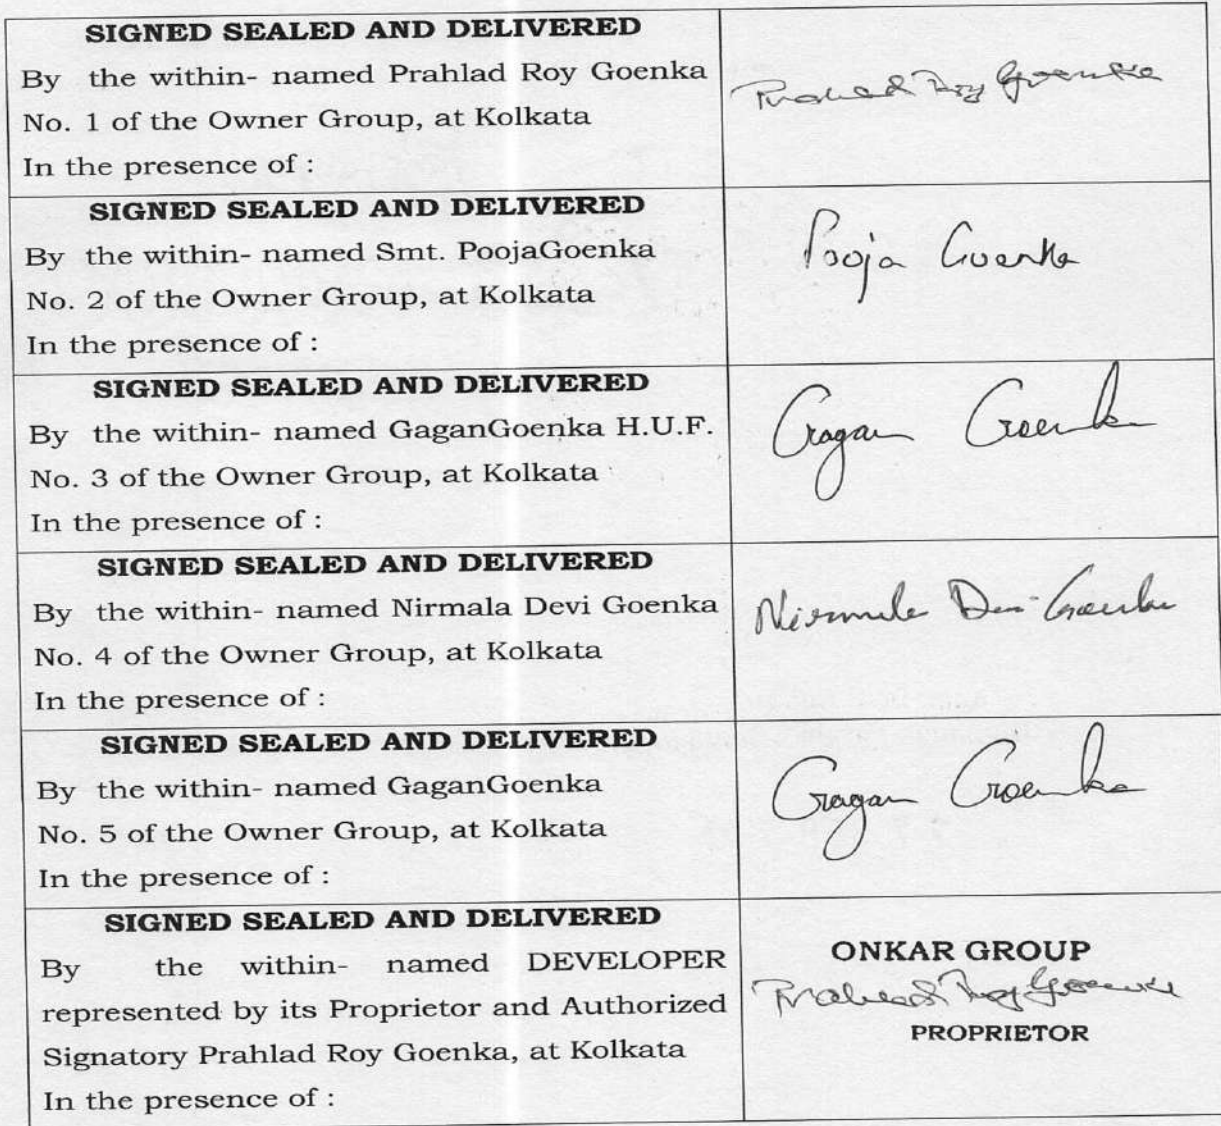 SIGNED SEALED AND DELIVERED
By the within- named Prahlad Roy Goenka
No. 1 of the Owner Group, at Kolkata
In the presence of :
Prahlad Roy Goenka
SIGNED SEALED AND DELIVERED
By the within- named Smt. PoojaGoenka
No. 2 of the Owner Group, at Kolkata
In the presence of :
Pooja Goenka
SIGNED SEALED AND DELIVERED
By the within- named GaganGoenka H.U.F.
No. 3 of the Owner Group, at Kolkata
In the presence of :
Gagan Goenka
SIGNED SEALED AND DELIVERED
By the within- named Nirmala Devi Goenka
No. 4 of the Owner Group, at Kolkata
In the presence of :
Nirmala Devi Goenka
SIGNED SEALED AND DELIVERED
By the within- named GaganGoenka
No. 5 of the Owner Group, at Kolkata
In the presence of :
Gagan Goenka
SIGNED SEALED AND DELIVERED
By the within- named DEVELOPER
represented by its Proprietor and Authorized
Signatory Prahlad Roy Goenka, at Kolkata
In the presence of :
ONKAR GROUP
Prahlad Roy Goenka
PROPRIETOR